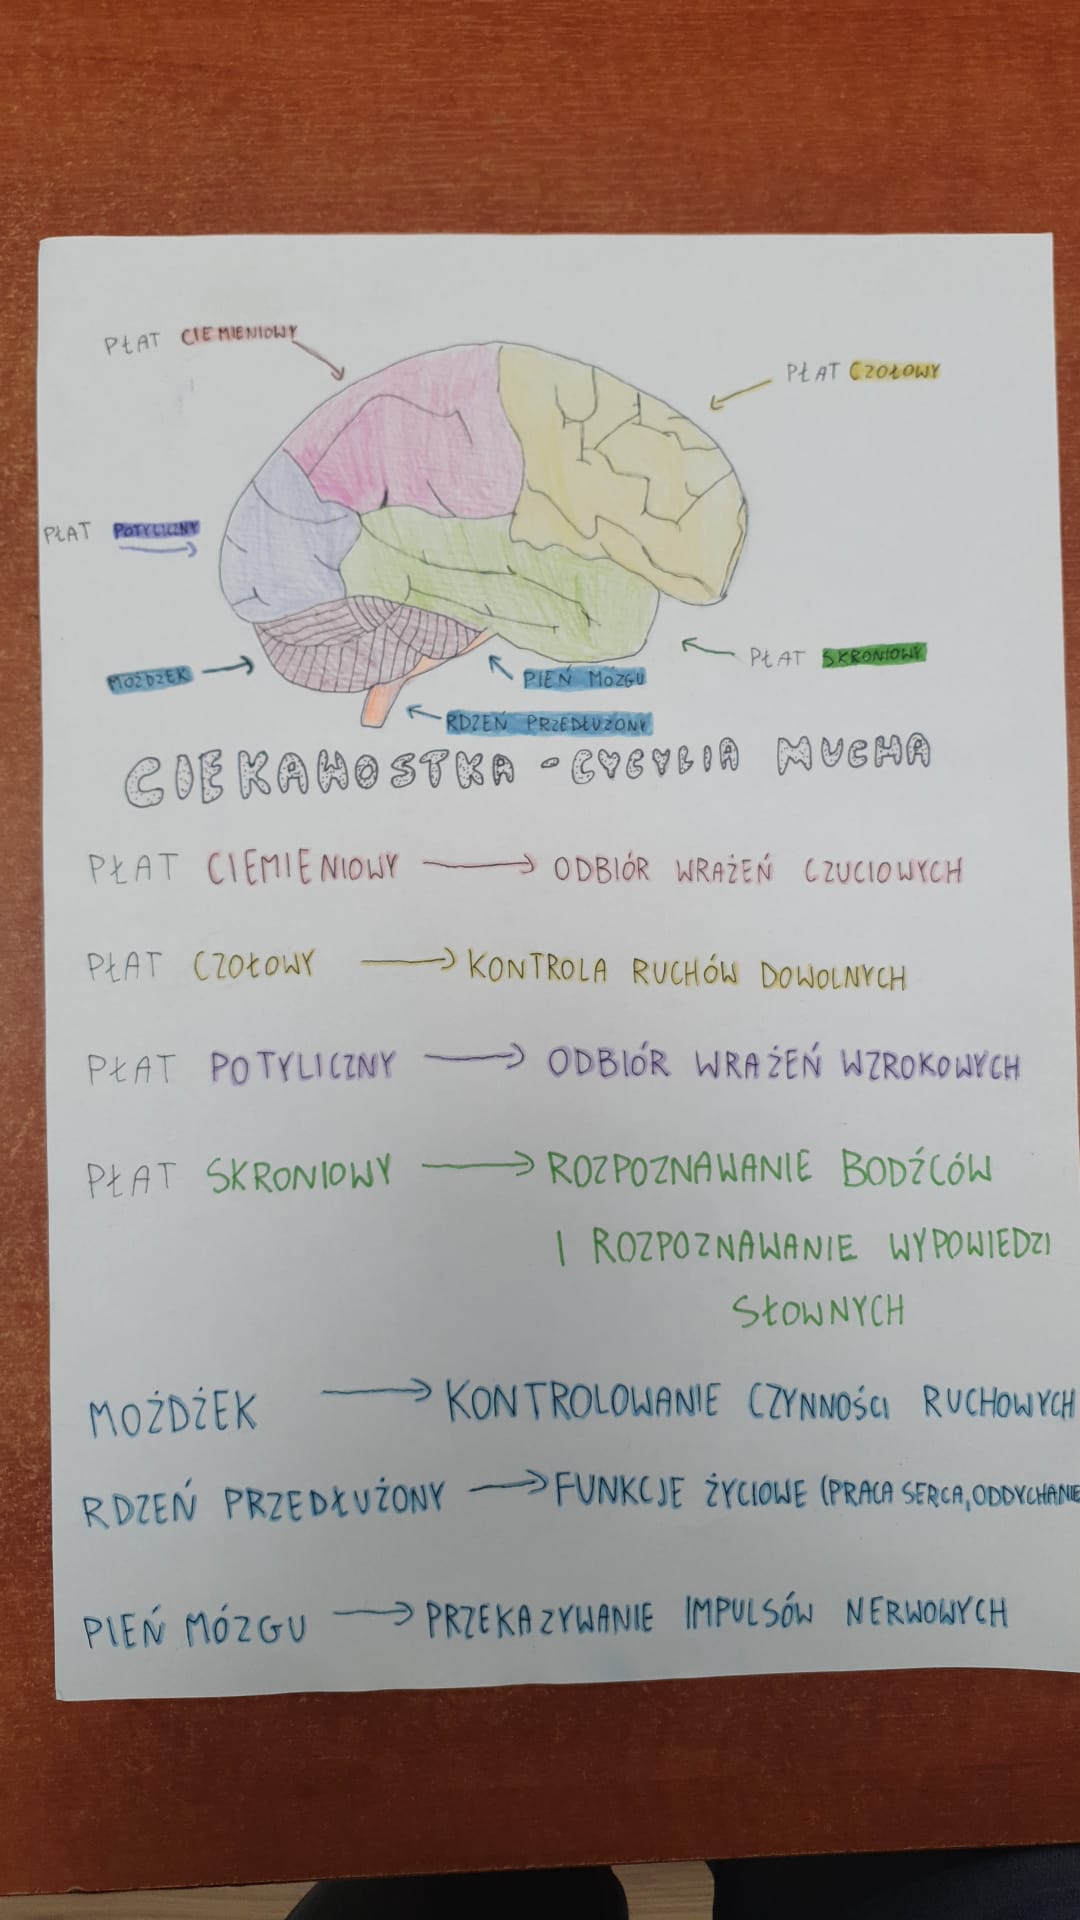 PŁAT CIEMIENIOWY
PŁAT CZOŁOWY
PŁAT POTYLICZNY
PŁAT SKRONIOWY
MOŻDŻEK
PIEŃ MÓZGU
RDZEŃ PRZEDŁUŻONY
CIEKAWOSTKA - CYCYLIA MUCHA
PŁAT CIEMIENIOWY → ODBIÓR WRAŻEŃ CZUCIOWYCH
PŁAT CZOŁOWY → KONTROLA RUCHÓW DOWOLNYCH
PŁAT POTYLICZNY → ODBIÓR WRAŻEŃ WZROKOWYCH
PŁAT SKRONIOWY → ROZPOZNAWANIE BODŹCÓW
I ROZPOZNAWANIE WYPOWIEDZI
SŁOWNYCH
MOŻDŻEK → KONTROLOWANIE CZYNNOŚCI RUCHOWYCH
RDZEŃ PRZEDŁUŻONY → FUNKCJE ŻYCIOWE (PRACA SERCA, ODDYCHANIE
PIEŃ MÓZGU → PRZEKAZYWANIE IMPULSÓW NERWOWYCH